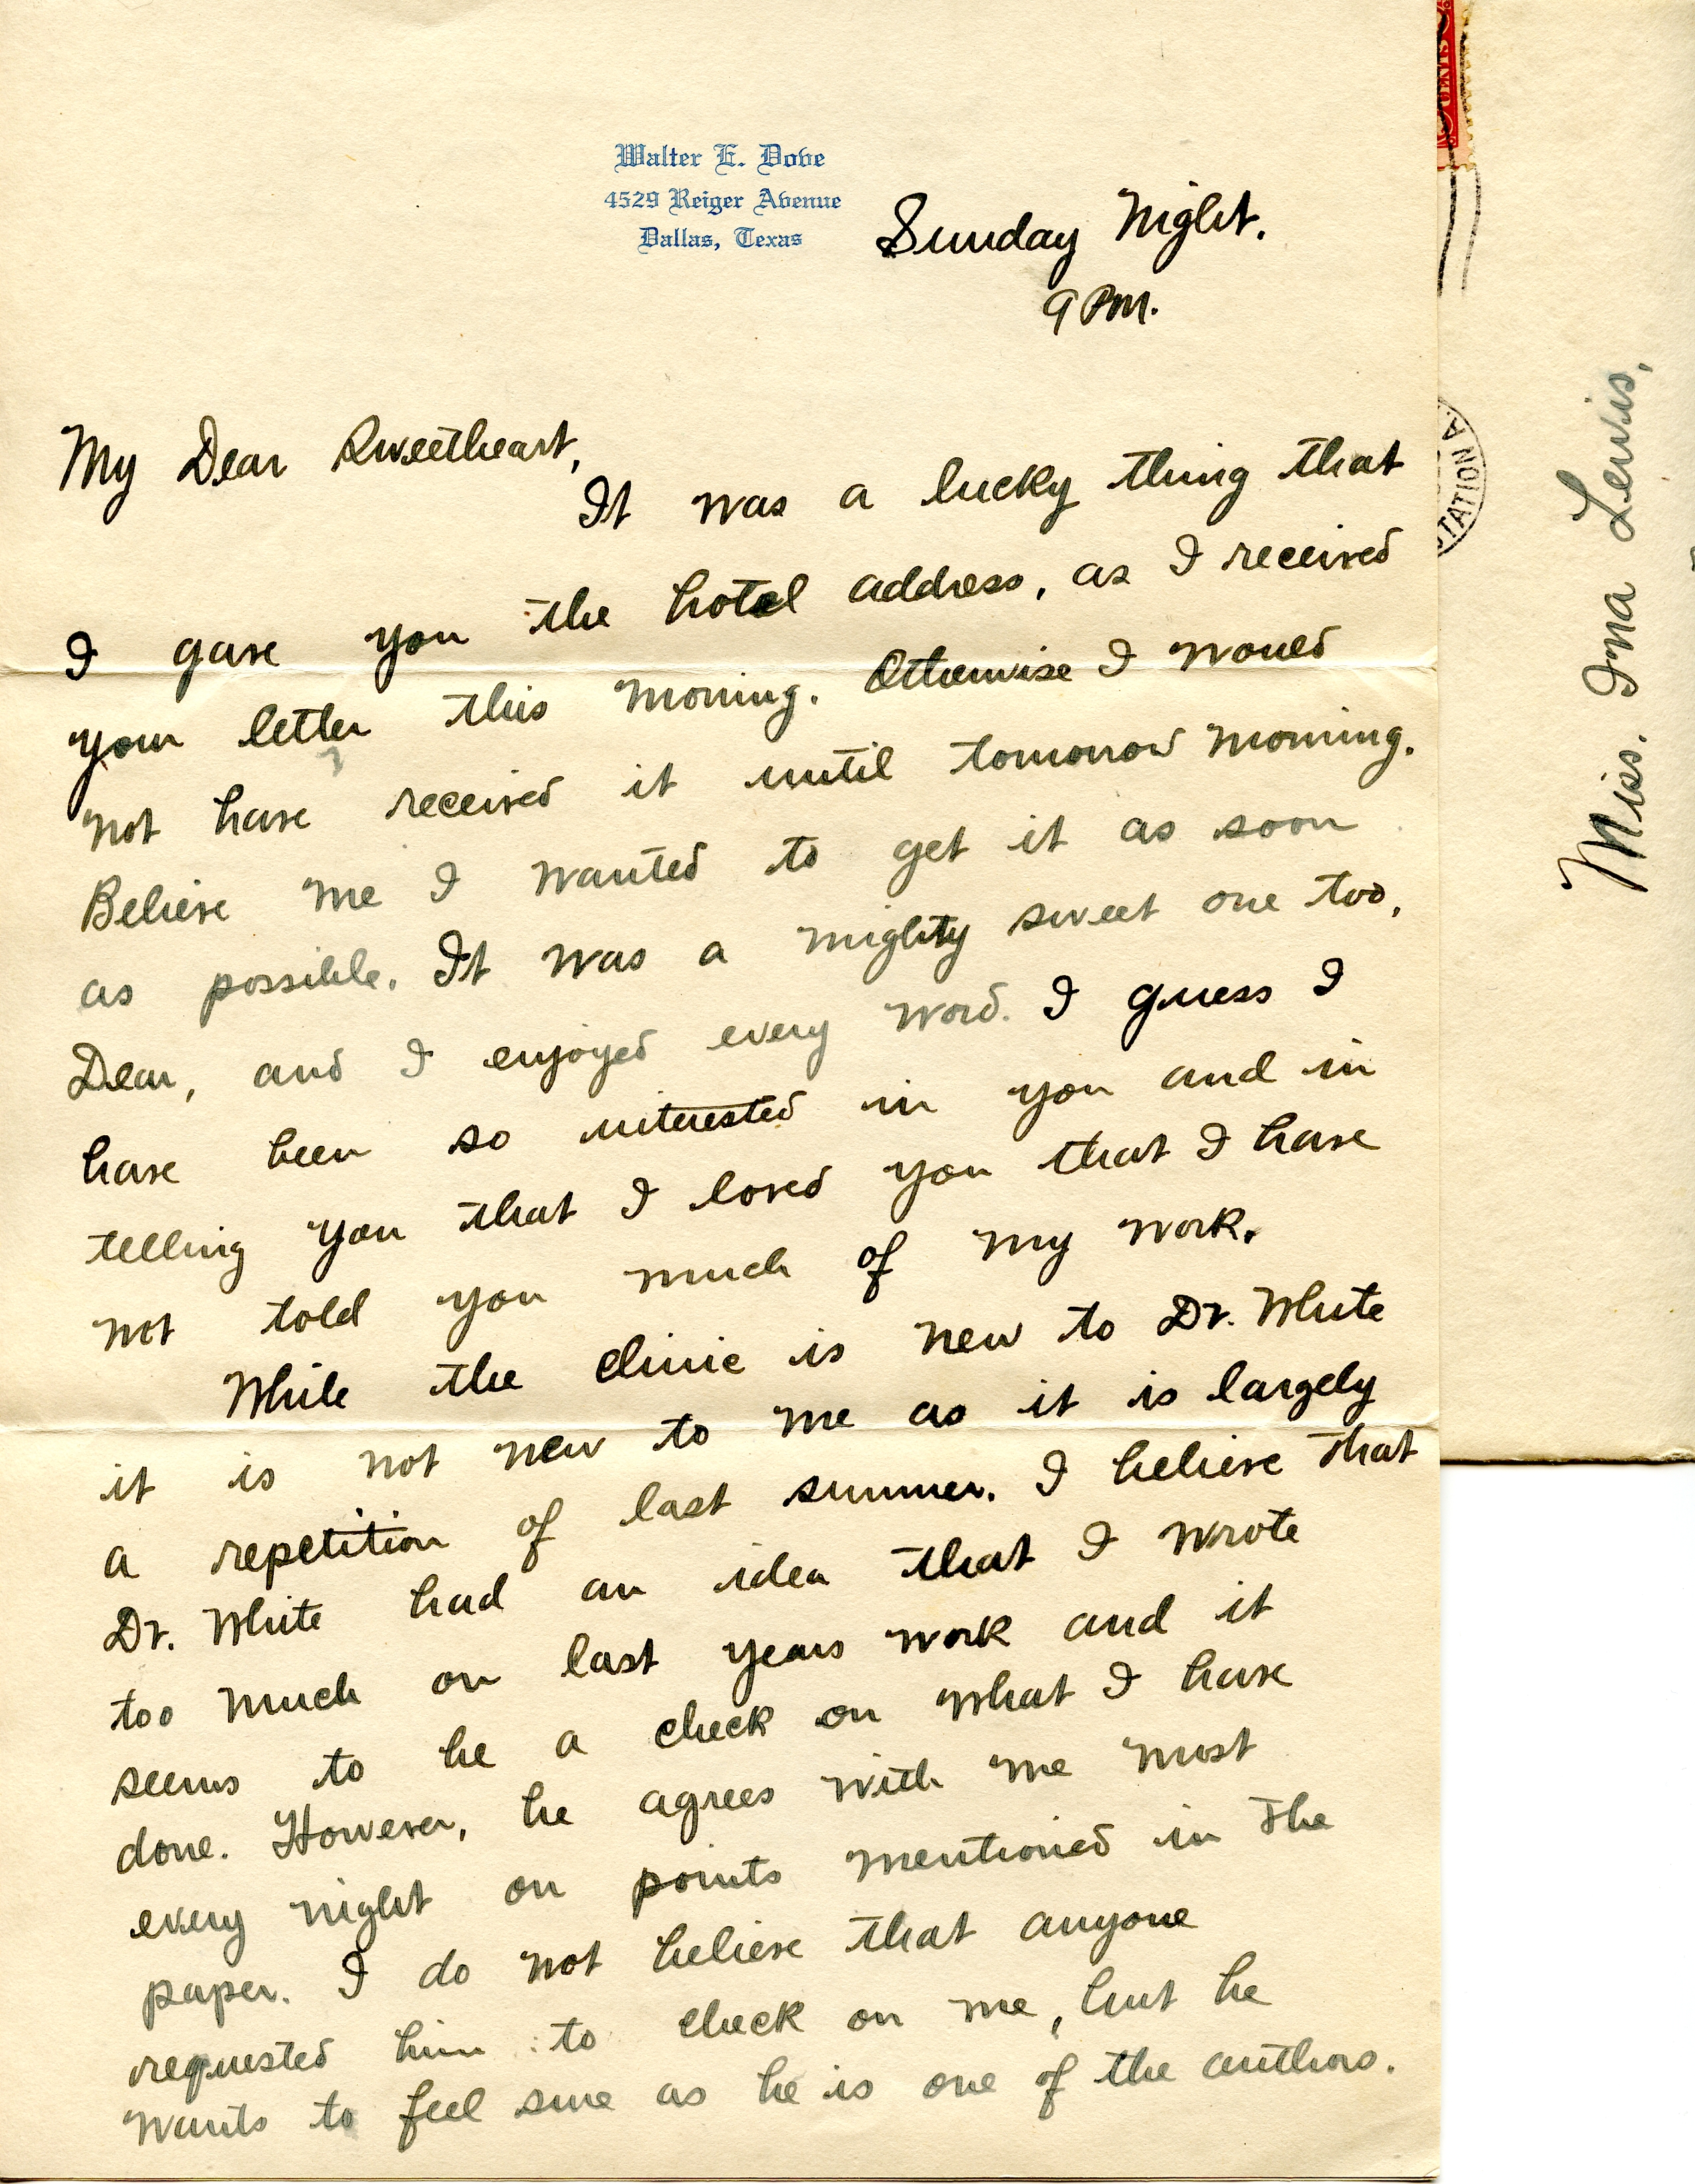 Walter E. Dove
4529 Reiger Avenue
Dallas, Texas
Sunday Night.
9 P.M.
My Dear Sweetheart,
It was a lucky thing that
I gave you the hotel address, as I received
your letter this morning. Otherwise I would
not have received it until tomorrow morning.
Believe me I wanted to get it as soon
as possible. It was a mighty sweet one too,
Dear, and I enjoyed every word. I guess I
have been so interested in you and in
telling you that I loved you that I have
not told you much of my work.
While the clinic is new to Dr. White
it is not new to me as it is largely
a repetition of last summer. I believe that
Dr. White had an idea that I wrote
too much on last years work and it
seems to be a check on what I have
done. However, he agrees with me most
every night on points mentioned in the
paper. I do not believe that anyone
requested him to check on me, but he
wants to feel sure as he is one of the authors.
CENTS
STATION A.
Miss. Ina Lewis,